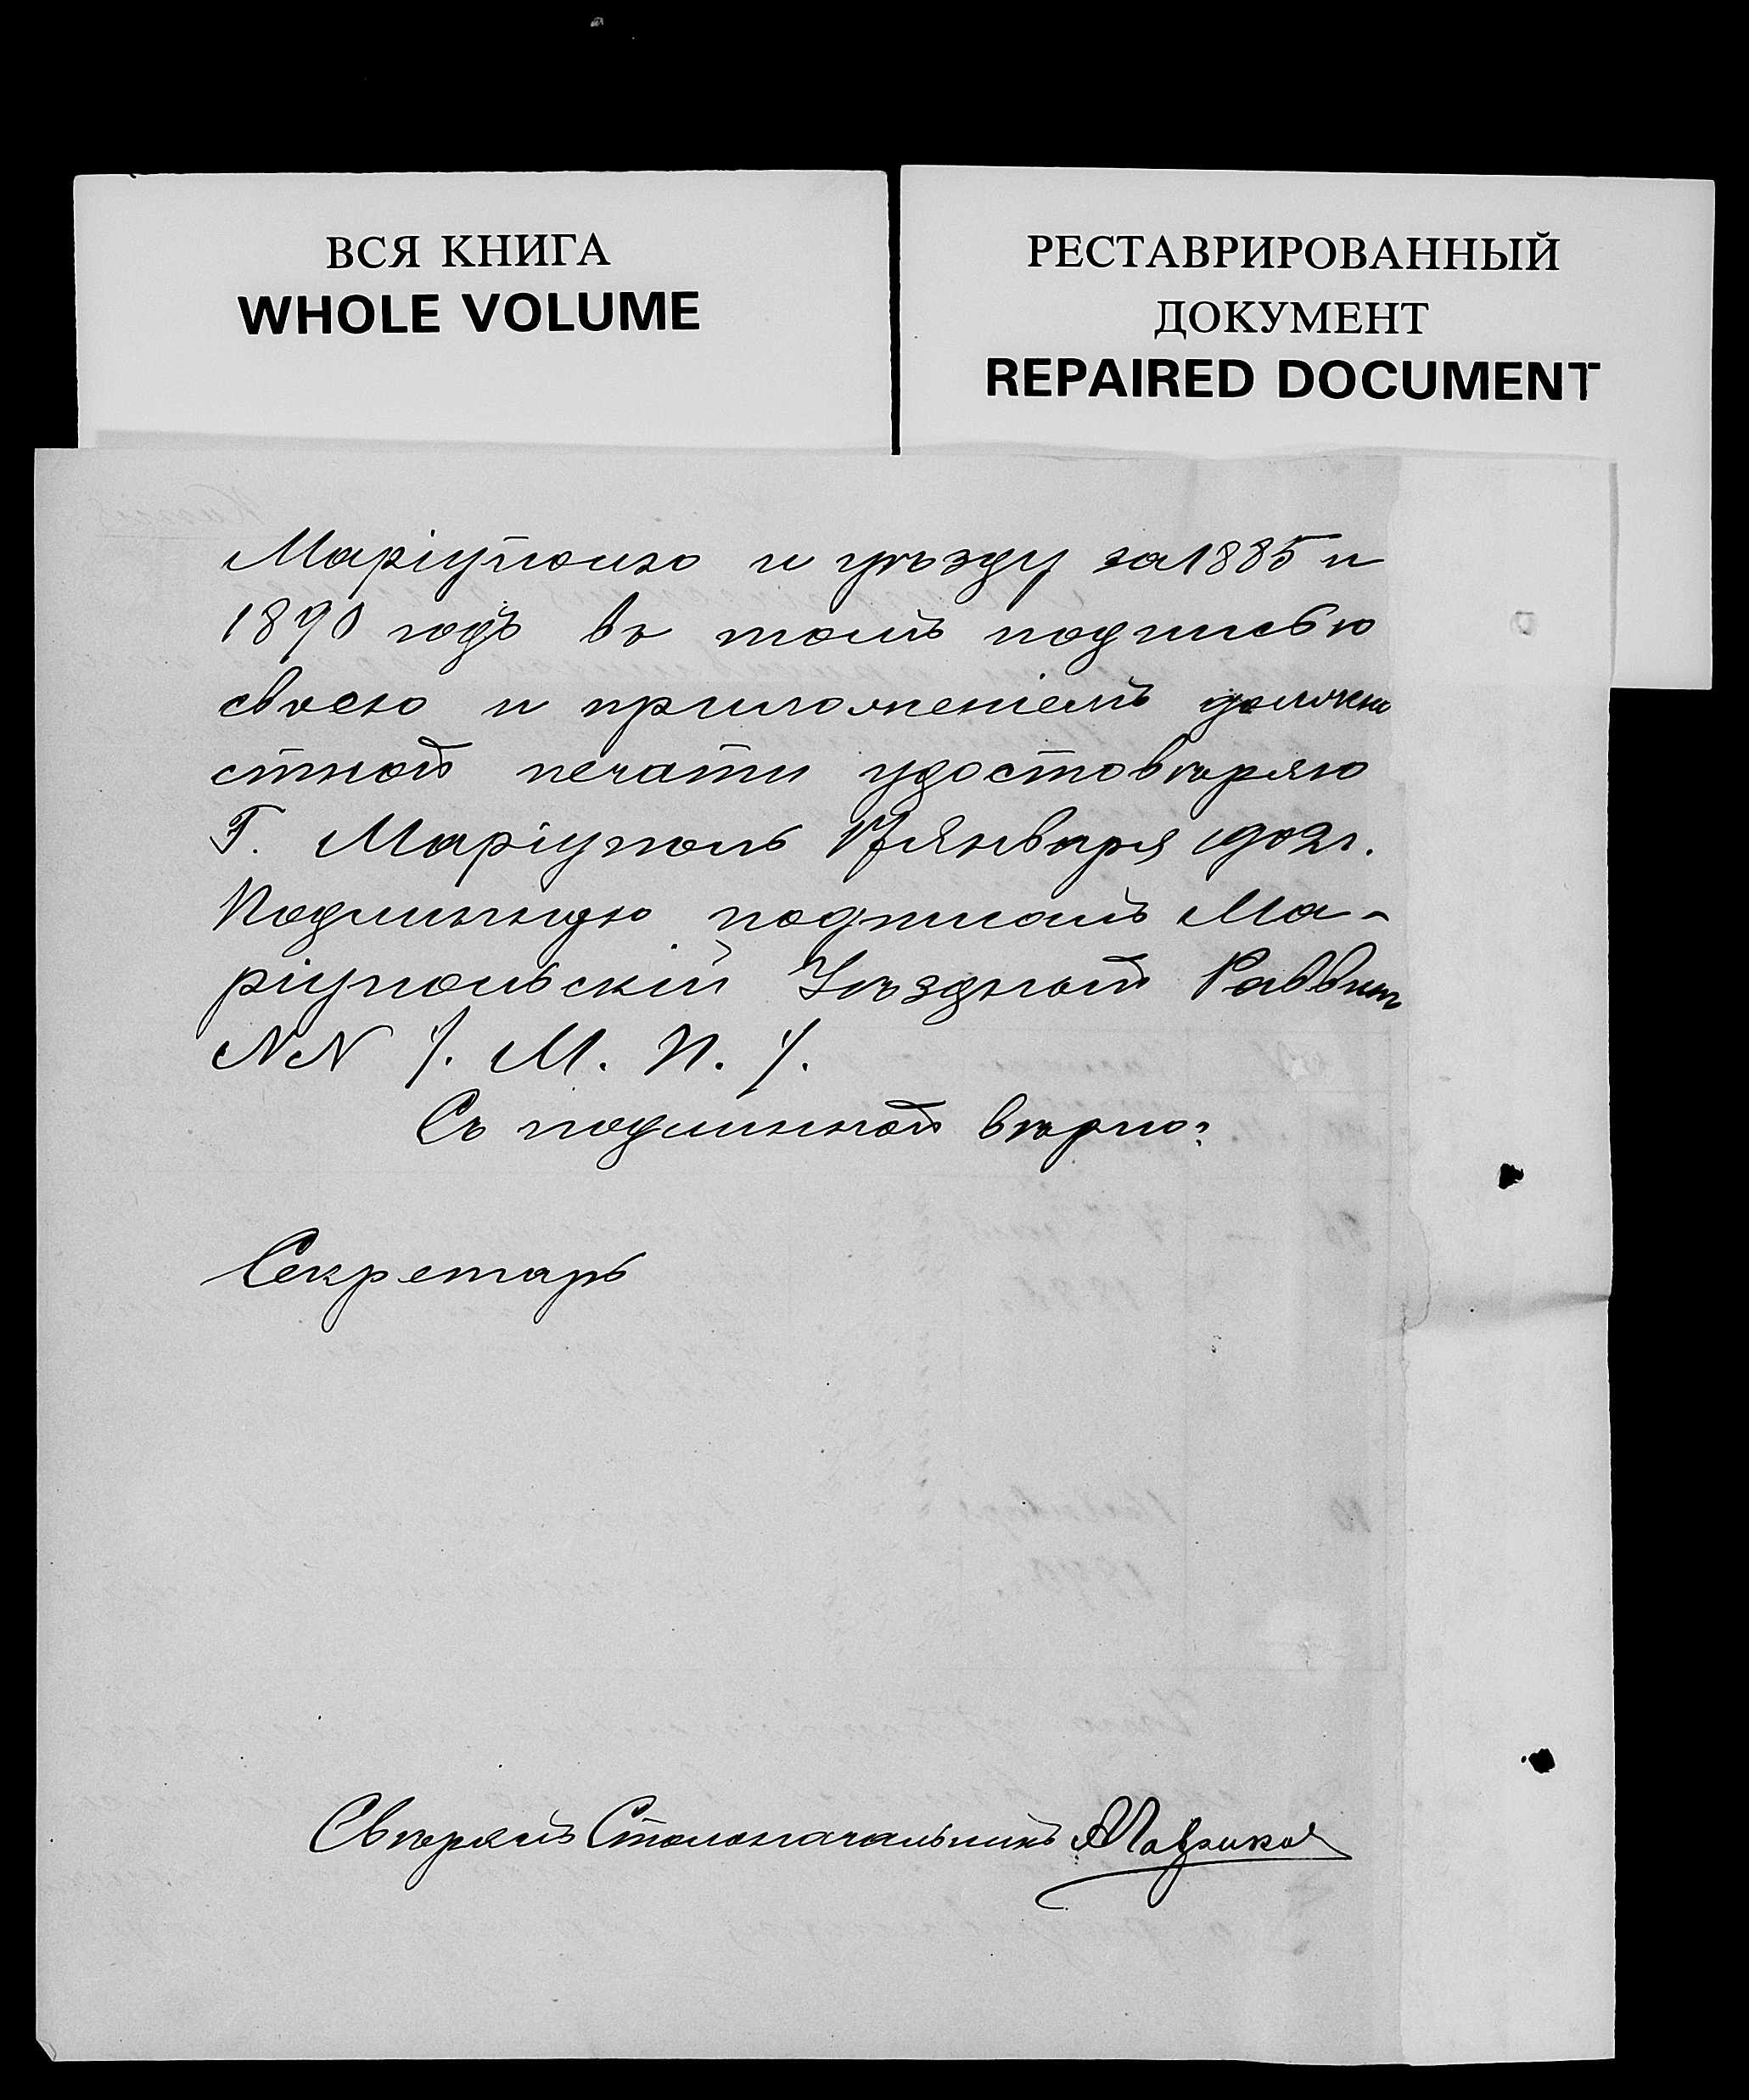 ВСЯ КНИГА
WHOLE VOLUME
РЕСТАВРИРОВАННЫЙ
ДОКУМЕНТ
REPAIRED DOCUMENT
Маріуполю и уѣзду за 1885 и
1890 годъ въ томъ подписью
своею и приложеніемъ должно
стной печати удостовѣряю
Г. Маріуполь 17 Января 1902 г.
Подлинную подписалъ Ма-
ріупольскій Уѣздный Раввинъ
NN /. М. П. /.
Съ подлинной вѣрно:
Секретарь
Свѣрялъ Столоначальникъ